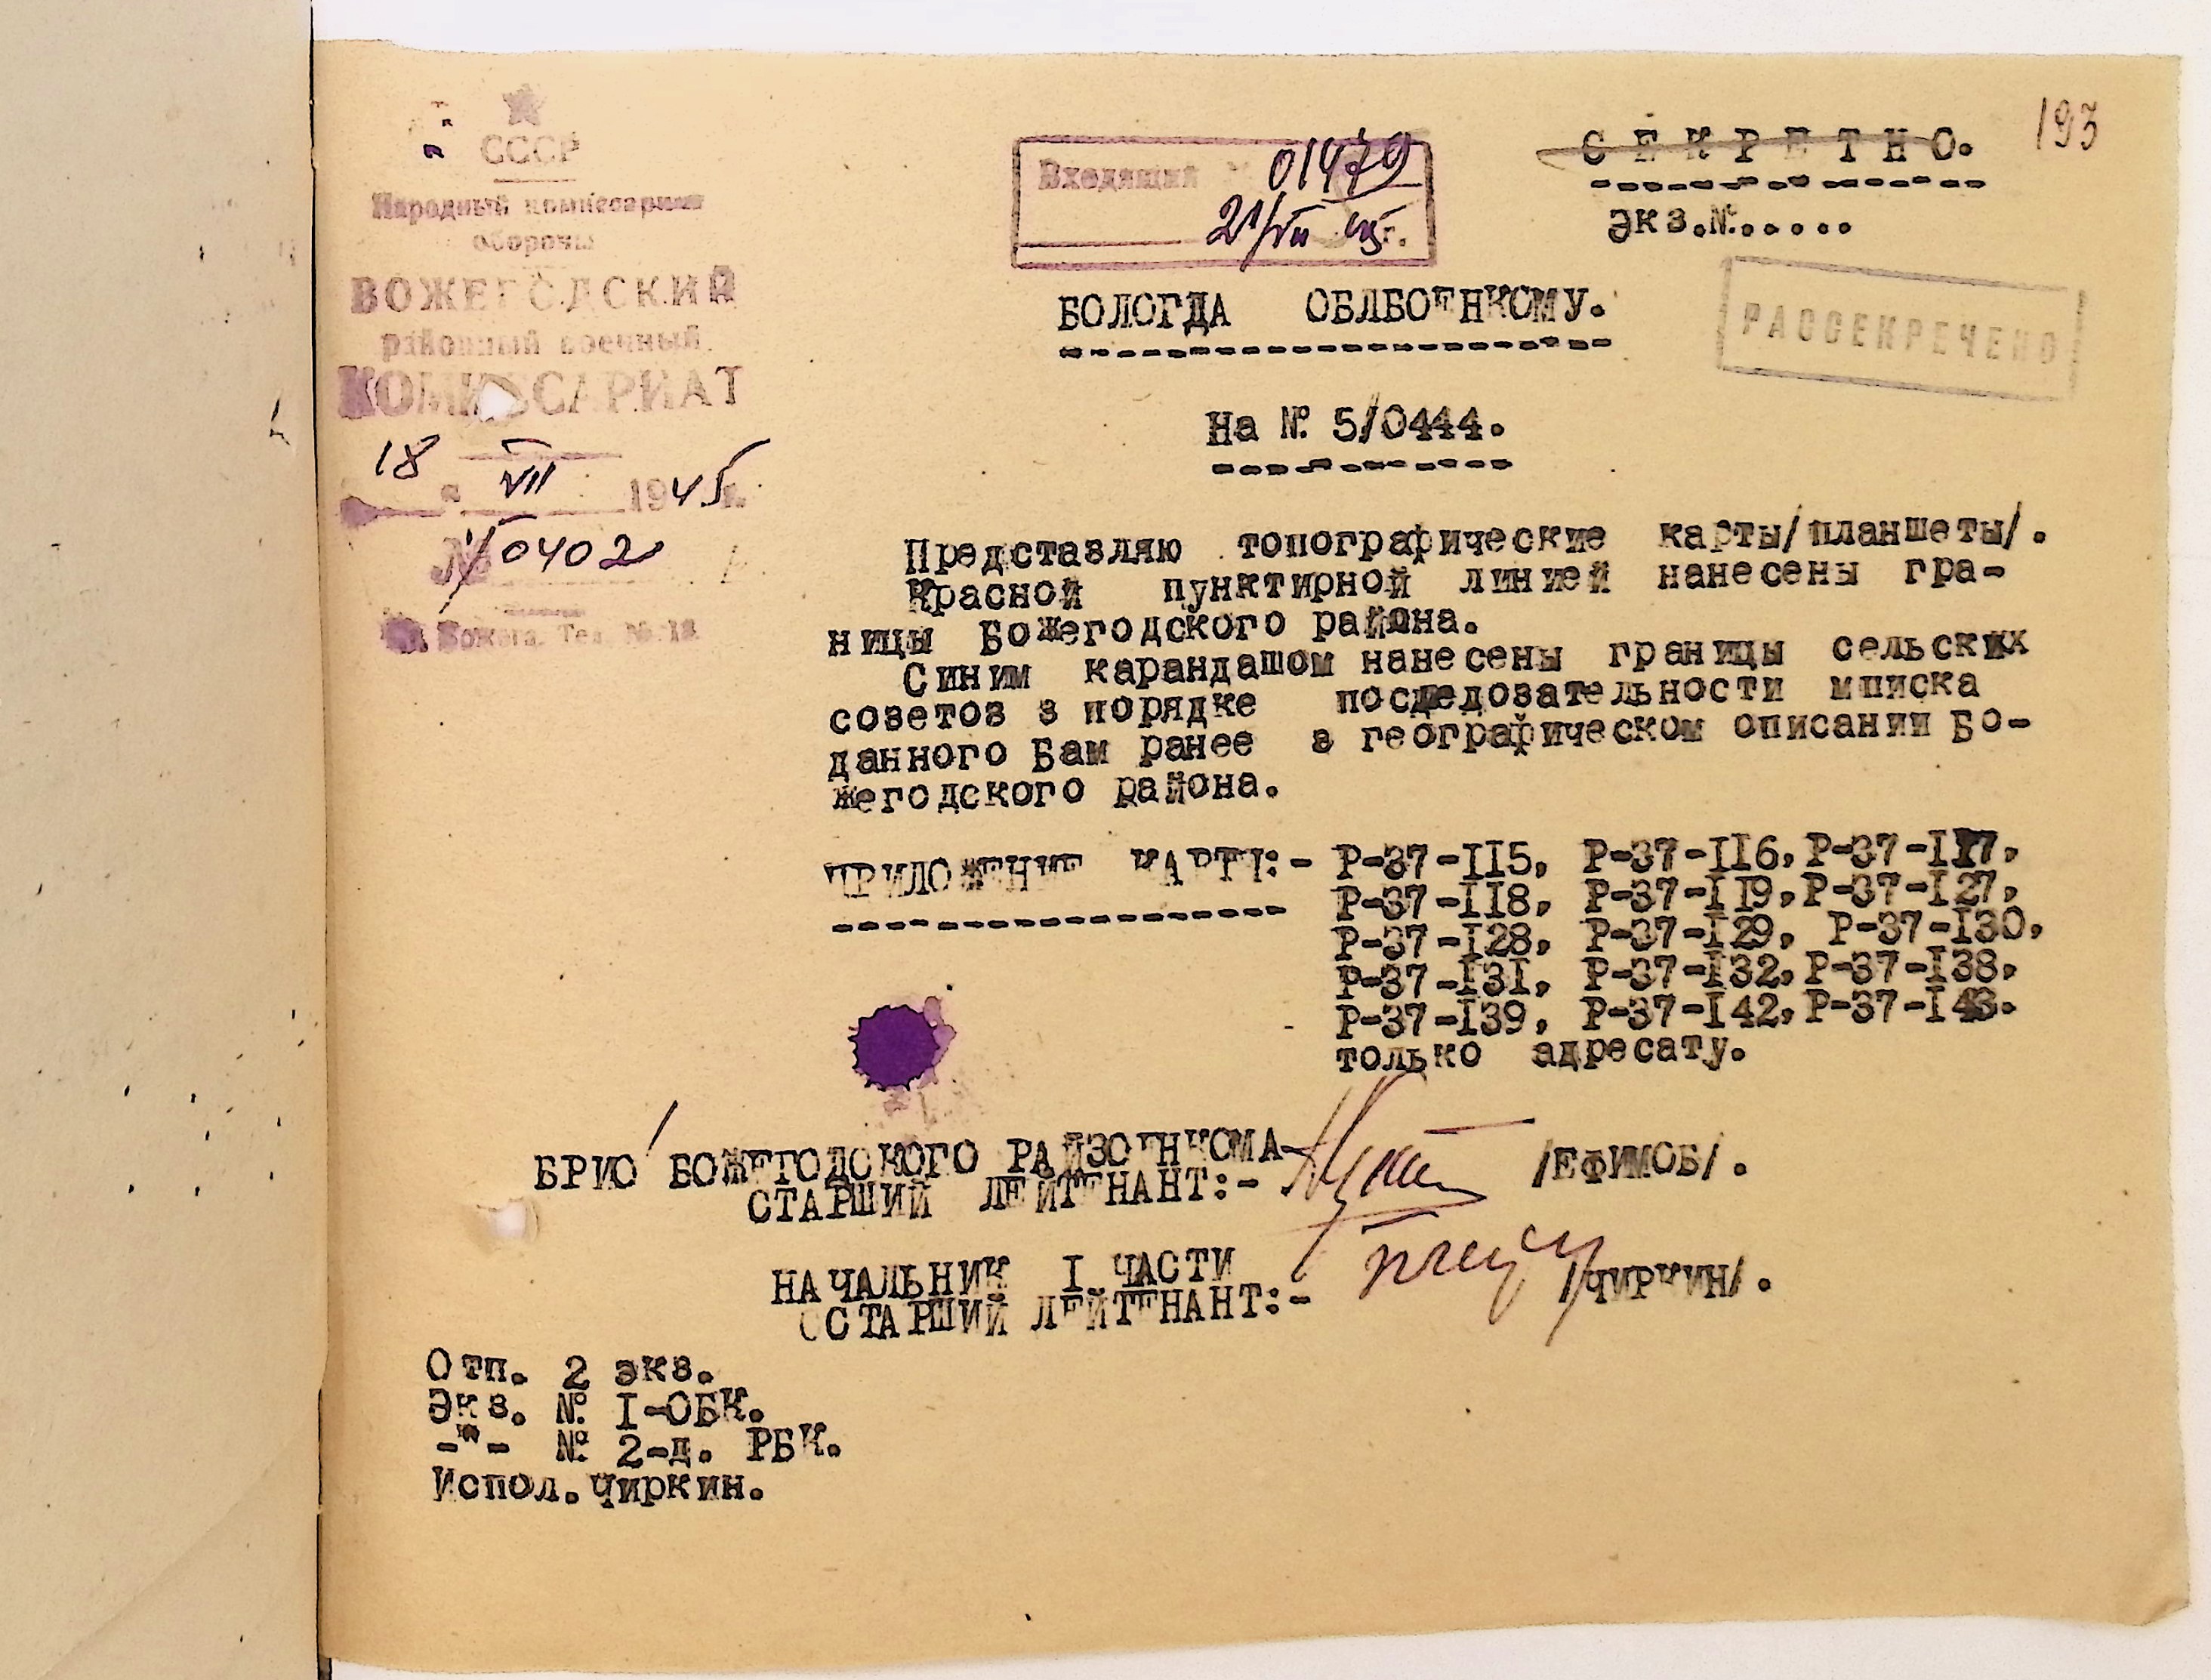 СССР
Народный комиссариат
обороны
ВОЖЕГОДСКИЙ
районный военный
КОМИССАРИАТ
18 VII 1945 г.
№ 1/0402
Вожега. Тел. № 18
Входящий 01479
21/VII 45 г.
СЕКРЕТНО.
193
экз.№.....
РАССЕКРЕЧЕНО
БОЛОГДА ОБЛБОЕНКОМУ.
На № 5/0444.
Представляю топографические карты/планшеты/.
Красной пунктирной линией нанесены гра-
ницы Божегодского района.
Синим карандашом нанесены границы сельских
советов в порядке последовательности мписка
данного Бам ранее в географическом описании Бо-
жегодского района.
ПРИЛОЖЕНИЕ КАРТЫ:- Р-37-II5, Р-37-II6, Р-37-II7,
Р-37-II8, Р-37-II9, Р-37-I27,
Р-37-I28, Р-37-I29, Р-37-I30,
Р-37-I3I, Р-37-I32, Р-37-I38,
Р-37-I39, Р-37-I42, Р-37-I43.
только адресату.
БРИО БОЖЕГОДСКОГО РАЙЗОЕНКОМА-
СТАРШИЙ ЛЕЙТЕНАНТ:- /ЕФИМОБ/.
НАЧАЛЬНИК I ЧАСТИ
ССТАРШИЙ ЛЕЙТЕНАНТ:- /ЧИРКИН/.
Отп. 2 экз.
Экз. № I-ОБК.
-"- № 2-д. РБК.
Испол. Чиркин.